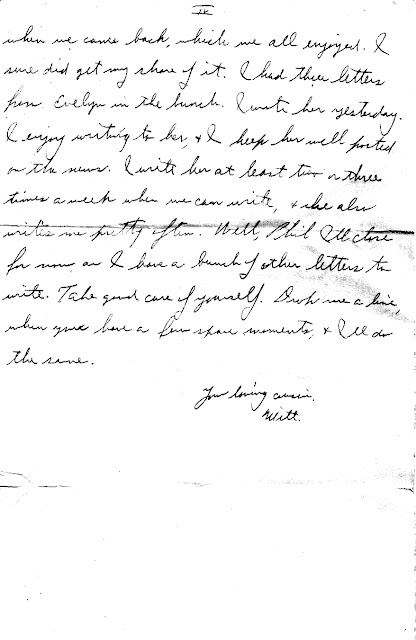 IV
when we came back, which we all enjoyed. I
sure did get my share of it. I had three letters
from Evelyn in the bunch. I wrote her yesterday.
I enjoy writing to her, & I keep her well posted
on the news. I write her at least two or three
times a week when we can write, & she also
writes me pretty often. Well, Phil I'll close
for now as I have a bunch of other letters to
write. Take good care of yourself. Drop me a line,
when you have a few spare moments, & I'll do
the same.
Your loving cousin.
Milt.